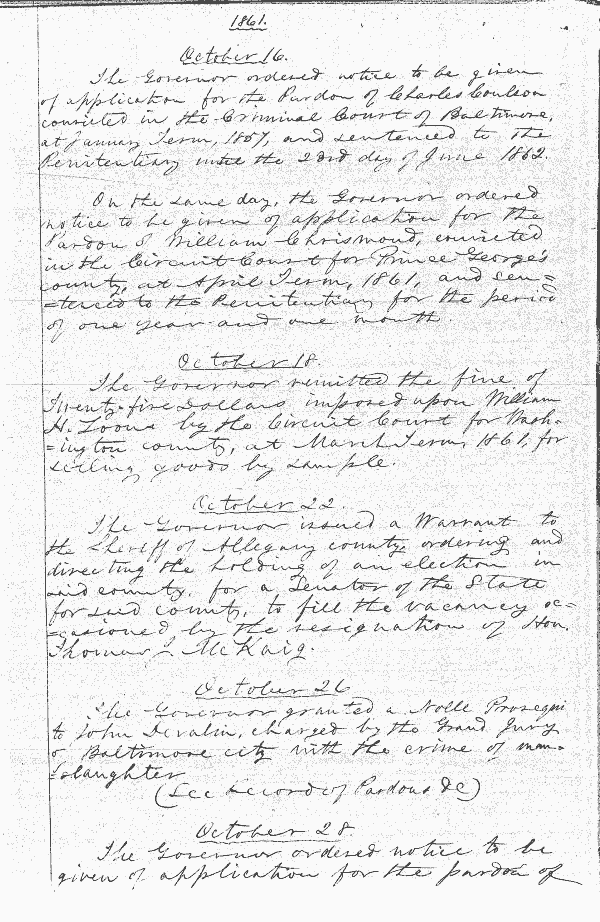 1861.
October 16.
The Governor ordered notice to be given
of application for the Pardon of Charles Coulson
convicted in the Criminal Court of Baltimore,
at January Term, 1857, and sentenced to the
Penitentiary until the 23rd day of June 1862.
On the same day, the Governor ordered
notice to be given of application for the
Pardon of William Chrismond, convicted
in the Circuit Court for Prince George's
county, at April Term, 1861, and sen=
=tenced to the Penitentiary for the period
of one year and one month.
October 18.
The Governor remitted the fine of
Twenty-five Dollars imposed upon William
H. Loons by the Circuit Court for Wash=
=ington county, at March Term, 1861, for
selling goods by sample.
October 22.
The Governor issued a Warrant to
the Sheriff of Allegany county, ordering and
directing the holding of an election in
said county, for a Senator of the State
for said county, to fill the vacancy oc=
=casioned by the resignation of Hon.
Thomas J. McKaig.
October 26
The Governor granted a Nolle Prosequi
to John Devalin, charged by the Grand Jury
of Baltimore city with the crime of man=
=slaughter
(See Record of Pardons &c)
October 28.
The Governor ordered notice to be
given of application for the pardon of